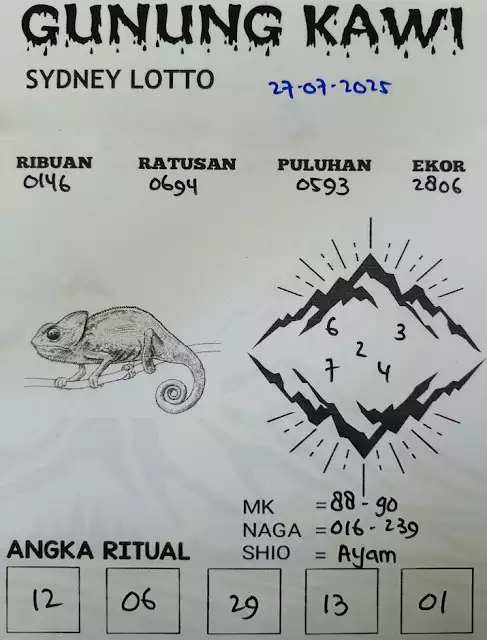 GUNUNG KAWI
SYDNEY LOTTO 27-07-2025
RIBUAN RATUSAN PULUHAN EKOR
0146 0694 0593 2806
6 3
2
7 4
MK = 88 - 90
NAGA = 016 - 239
SHIO = Ayam
ANGKA RITUAL
12 06 29 13 01